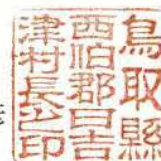 鳥取縣
西伯郡日吉
津村長之印